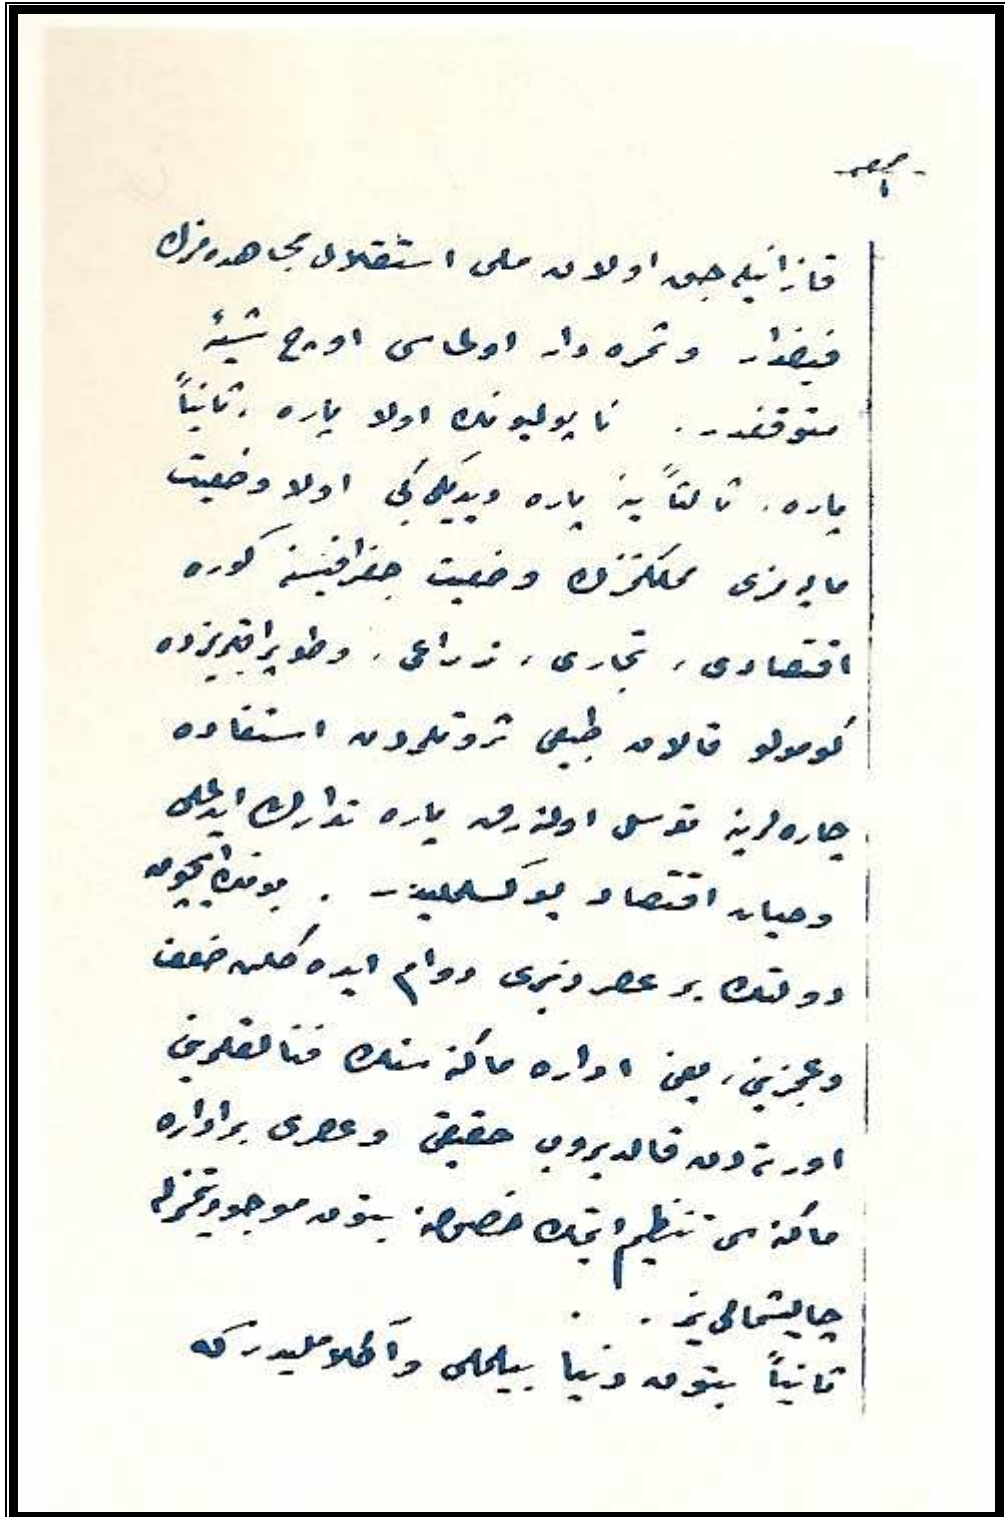 صحيفه
١
قازانيله جق اولان ملی استقلال مجاهده مزك
فيضدار و ثمره دار اولماسی اوچ شيئه
متوقفدر. ناپوليونك اولا پاره ، ثانياً
پاره ، ثالثاً ينه پاره ديديكی كبی اولا وضعيت
ماليه مزی مملكتمزك وضعيت جغرافيسنه كوره
اقتصادی ، تجاری ، زراعی ، وطوپراقلريمزده
كومولو قالان طبيعی ثروتلردن استفاده
چاره لرينه توسل اولنه رق پاره تدارك ايدلملی
وحيات اقتصاد يوكسلمليدر . بونك ايچون
دولتك بر عصر دنبری دوام ايده كلن ضعف
وعجزينی ، يعنی اداره ماكنه سنك فنالقلرينی
اورته دن قالديروب حقيقی وعصری بر اداره
ماكنه سی تنظيم ايتمك خصوصنه بتون موجوديتمزله
چاليشمالی يز .
ثانياً بتون دنيا بيلملی وآكلامليدر كه